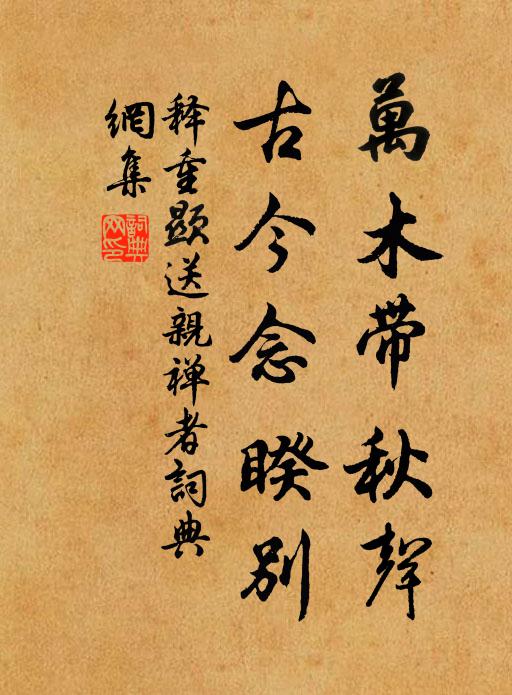 萬木帶秋聲
古今念睽別
释重顯送親禅者詞典
網集
詞典網印